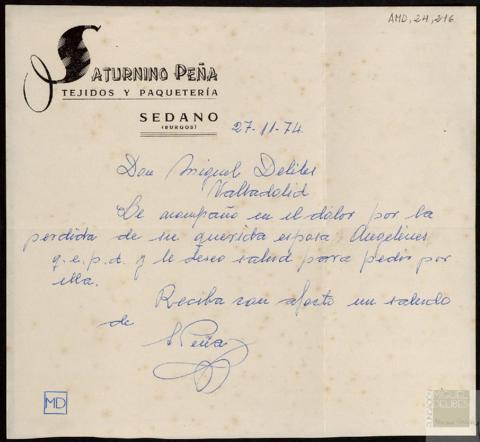 AMD, 24, 216
SATURNINO PEÑA
TEJIDOS Y PAQUETERÍA
SEDANO
(BURGOS)
27-11-74
Don Miguel Delibes
Valladolid
Le acompaño en el dolor por la
perdida de su querida esposa Angelines
q.e.p.d. y le deseo salud para pedir por
ella.
Reciba con afecto un saludo
de
S Peña
MD
MIGUEL
DELIBES